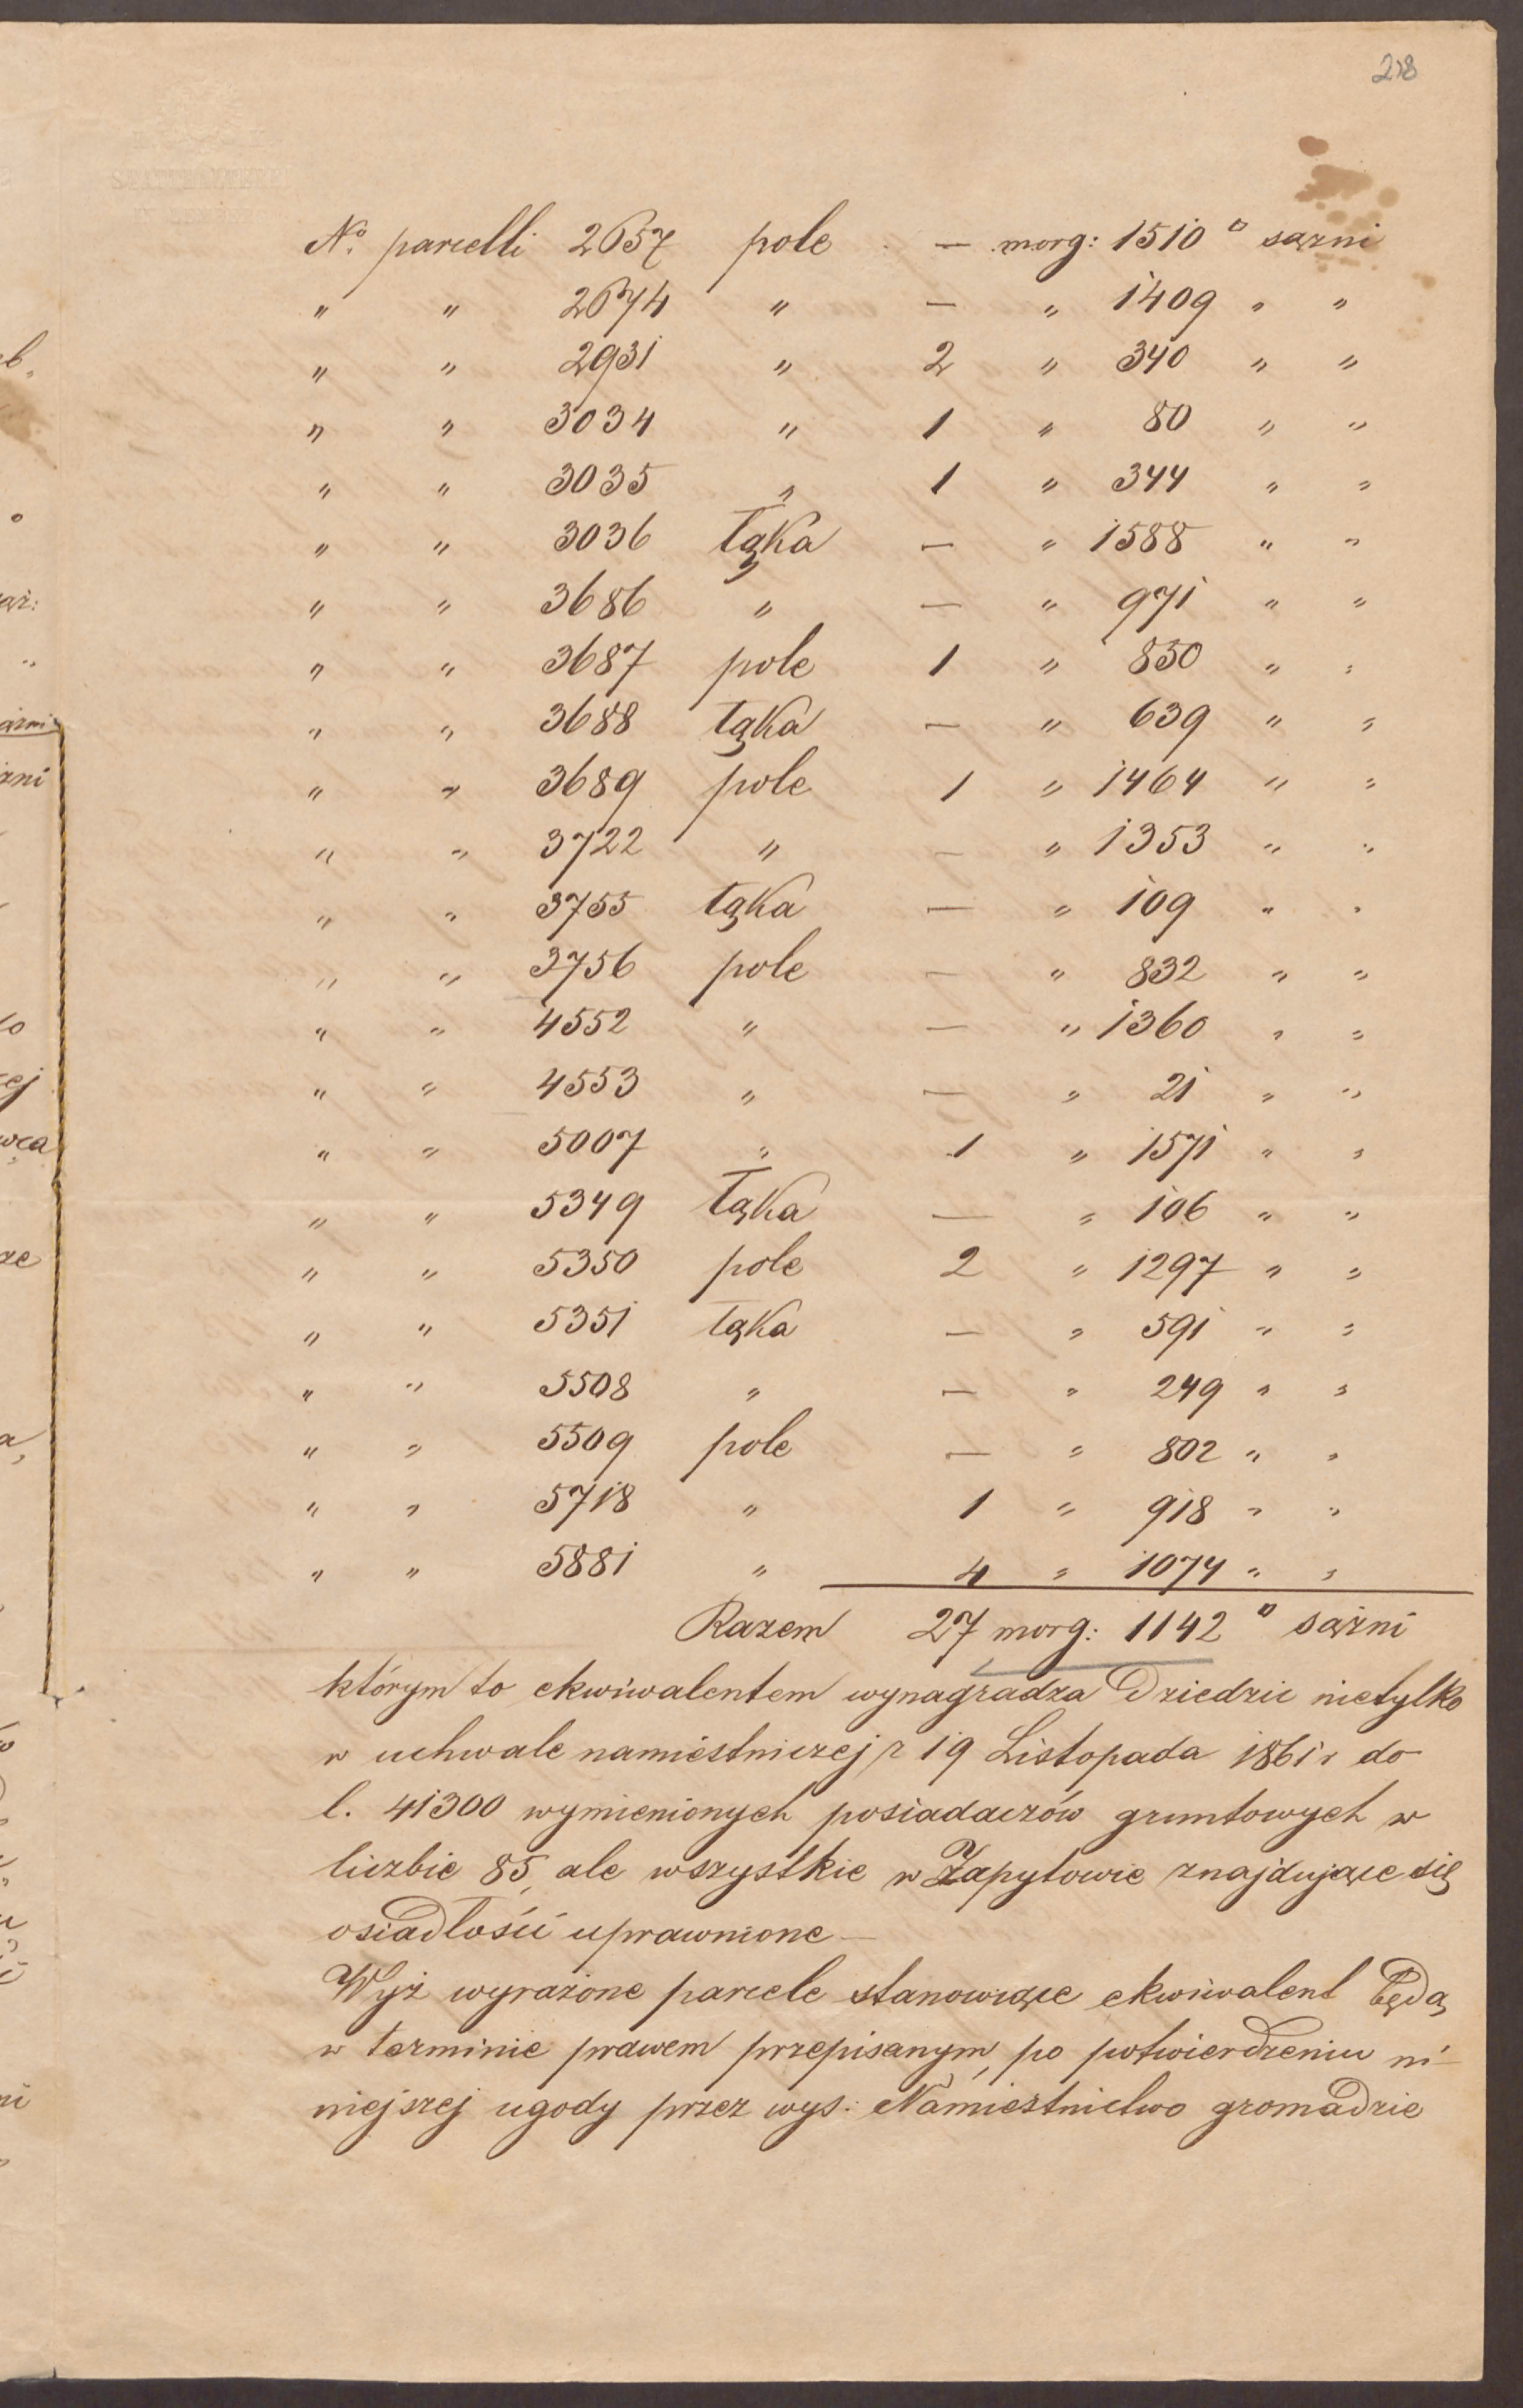 218
No. parcelli 2657 pole — morg: 1510 □ sążni
" " 2674 " — " 1409 " "
" " 2931 " 2 " 340 " "
" " 3034 " 1 " 80 " "
" " 3035 " 1 " 344 " "
" " 3036 łąka — " 1588 " "
" " 3686 " — " 971 " "
" " 3687 pole 1 " 850 " "
" " 3688 łąka — " 639 " "
" " 3689 pole 1 " 1464 " "
" " 3722 " — " 1353 " "
" " 3755 łąka — " 109 " "
" " 3756 pole — " 832 " "
" " 4552 " — " 1360 " "
" " 4553 " — " 21 " "
" " 5007 " 1 " 1571 " "
" " 5349 łąka — " 106 " "
" " 5350 pole 2 " 1297 " "
" " 5351 łąka — " 591 " "
" " 5508 " — " 249 " "
" " 5509 pole — " 802 " "
" " 5718 " 1 " 918 " "
" " 5881 " 4 " 1074 " "
Razem 27 morg: 1142 □ sążni
którym to ekwiwalentem wynagradza Dziedzic nietylko
w uchwale namiestniczej z 19 Listopada 1861 r do
l. 41300 wymienionych posiadaczów gruntowych w
liczbie 85, ale wszystkie w Zapytowie znajdujące się
osiadłości uprawnione —
Wyż wyrażone parcele stanowiące ekwiwalent będą
w terminie prawem przepisanym, po potwierdzeniu ni-
niejszej ugody przez wys: Namiestnictwo gromadzie